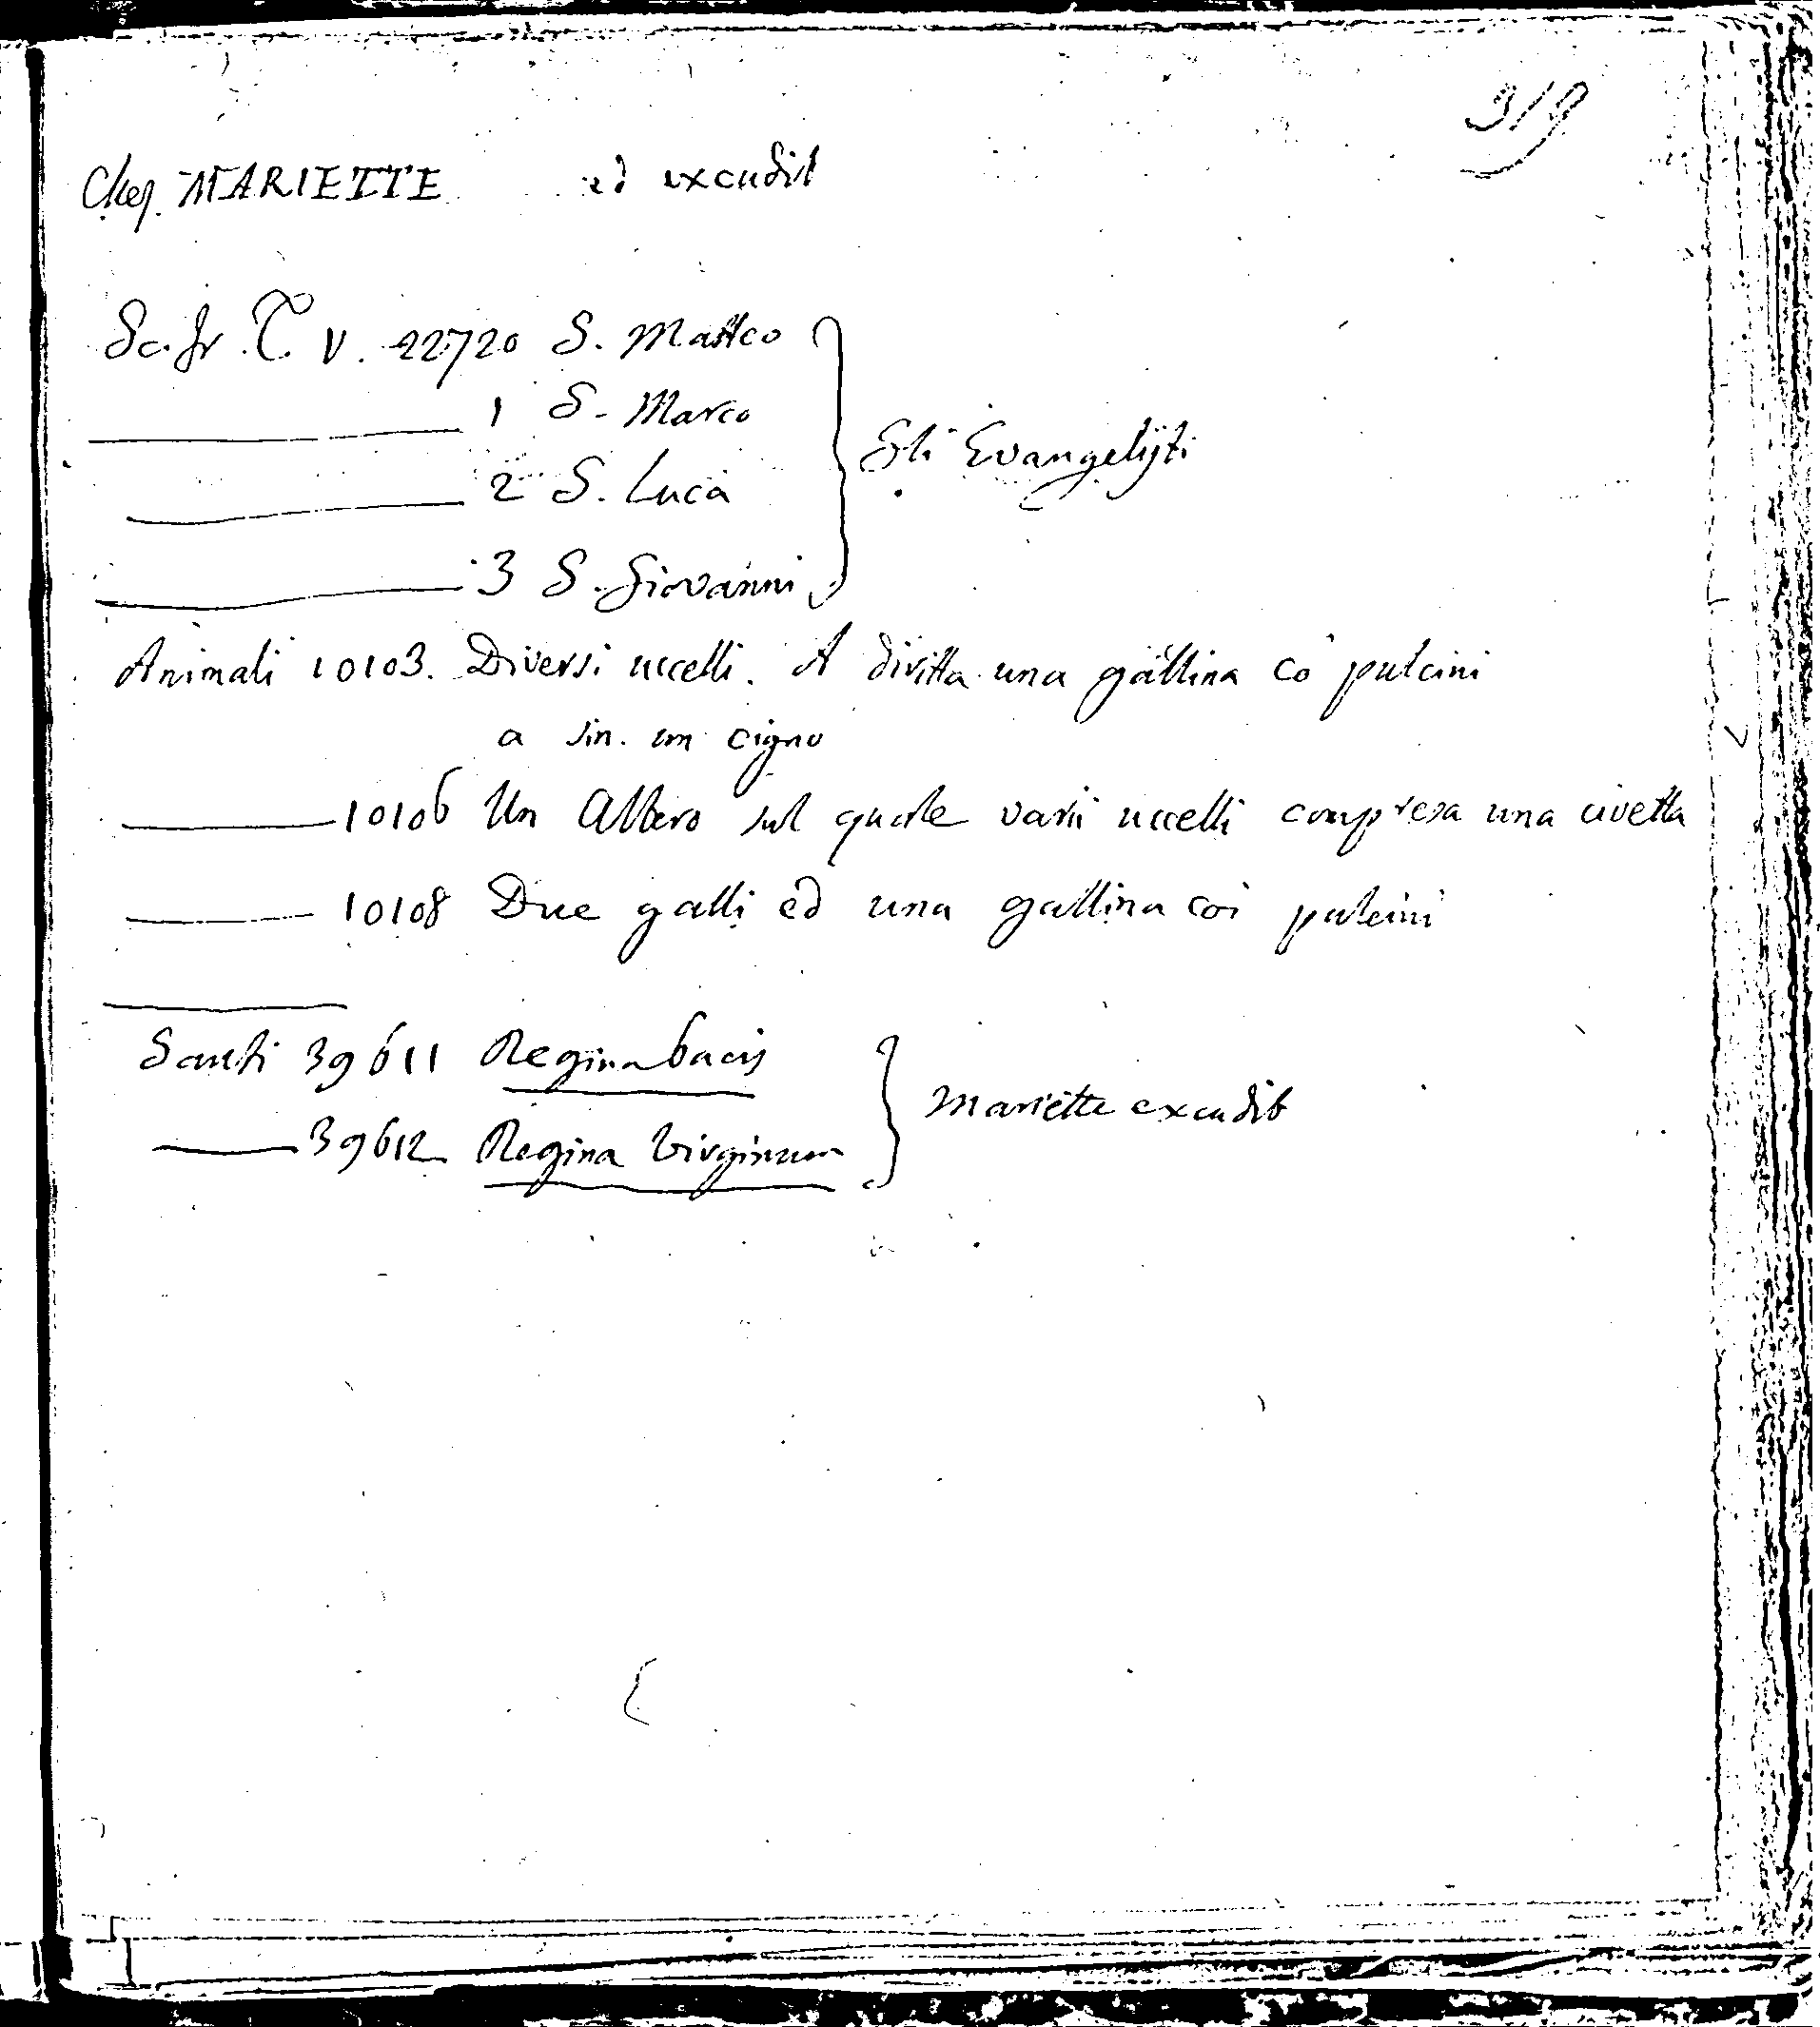 319
Chez MARIETTE ed excudit
Sc. fr. T. V. 22720 S. Matteo
1 S. Marco
Gli Evangelisti
2 S. Luca
3 S. Giovanni
Animali 10103. Diversi uccelli. A diritta una gallina co' pulcini
a sin. un cigno
10106 Un Albero sul quale varii uccelli compresa una civetta
10108 Due galli ed una gallina coi pulcini
Santi 39611 Regina
Mariette excudit
39612 Regina Virginum